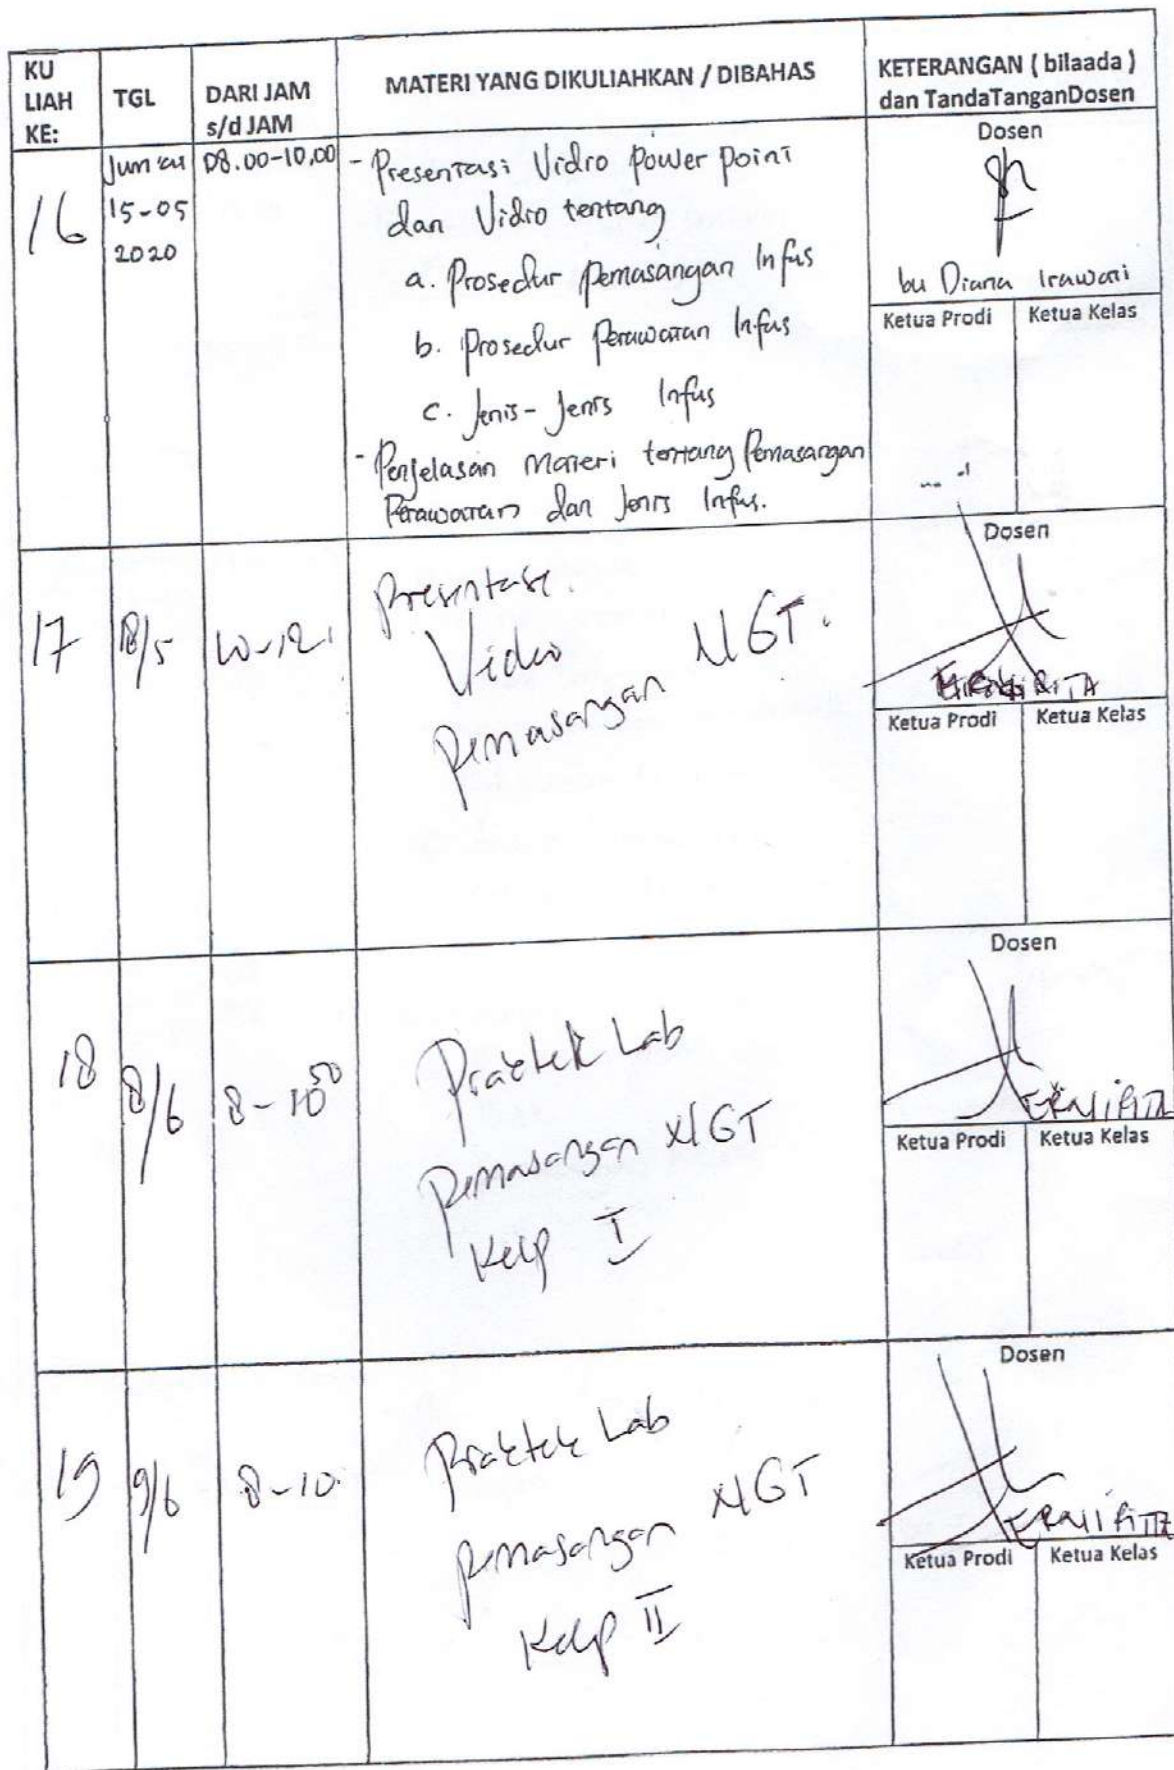 KU LIAH KE:
TGL
DARI JAM s/d JAM
MATERI YANG DIKULIAHKAN / DIBAHAS
KETERANGAN ( bilaada ) dan TandaTanganDosen
16
Jum'at 15-05 2020
08.00-10.00
- Presentasi Vidio Power Point
dan Vidio tentang
a. Prosedur Pemasangan Infus
b. Prosedur Perawatan Infus
c. Jenis-Jenis Infus
- Penjelasan Materi tentang Pemasangan
Perawatan dan Jenis Infus.
Dosen
bu Diana Irawati
Ketua Prodi
Ketua Kelas
17
18/5
10-12
Presentase.
Video NGT.
Pemasangan
Dosen
Ketua Prodi
Ketua Kelas
18
8/6
8-10 50
Praktek Lab
Pemasangan NGT
Kelp I
Dosen
ERNI RITA
Ketua Prodi
Ketua Kelas
19
9/6
8-10
Praktek Lab
Pemasangan NGT
Kelp II
Dosen
ERNI RITA
Ketua Prodi
Ketua Kelas